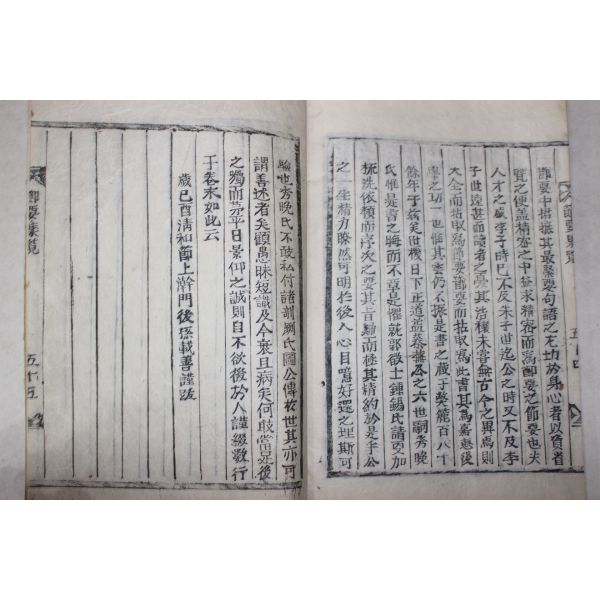 節要中掇振其最緊要句語之尤功於身心者以負者
覽之便盖精密之中益求精密而爲節要之節要也夫
人才之盛李子時已不及朱子世迄公之時又不及李
子世遠甚而讀者之憂其浩穰未嘗無古今之異焉則
大全而拈取爲節要節要而拈取爲此書其爲嘉惠後
學之功一也惟其雲仍不振是書之藏于嫯篋百八十
餘年于玆矣世機日下正道益榛蕪公之六世嗣秀晩
氏惟是書之晦而不章是懼就郭徵士鍾錫氏請更加
梳洗依類而序次之要其肯䌖而極其精約於是乎公
之一生精力瞭然可明於後人心目噫好還之理斯可
驗也秀晩氏不敢私付諸剞劂氏圖公傳於世其亦可
謂善述者矣顧愚昧短識及今衰且病矣何敢當是後
之獨而第平日景仰之誠則自不欲後於人謹綴數行
于卷末如此云
歲己酉淸和節上澣門後孫載善謹跋
節要纂覽
五十五